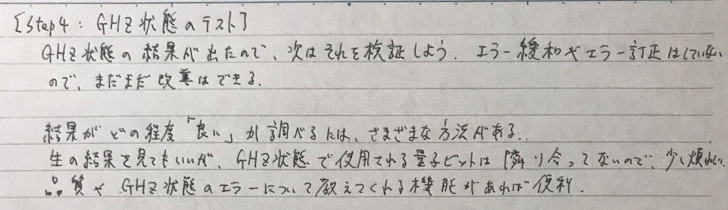 [Step4：GHZ状態のテスト]
GHZ状態の結果が出たので、次はそれを検証しよう. エラー緩和やエラー訂正はしていない
ので、まだまだ改善はできる.
結果がどの程度「良い」か調べるには、さまざまな方法がある.
生の結果を見てもいいが、GHZ状態で使用される量子ビットは隣り合ってないので、少し煩わしい.
品質やGHZ状態のエラーについて教えてくれる機能があれば便利.